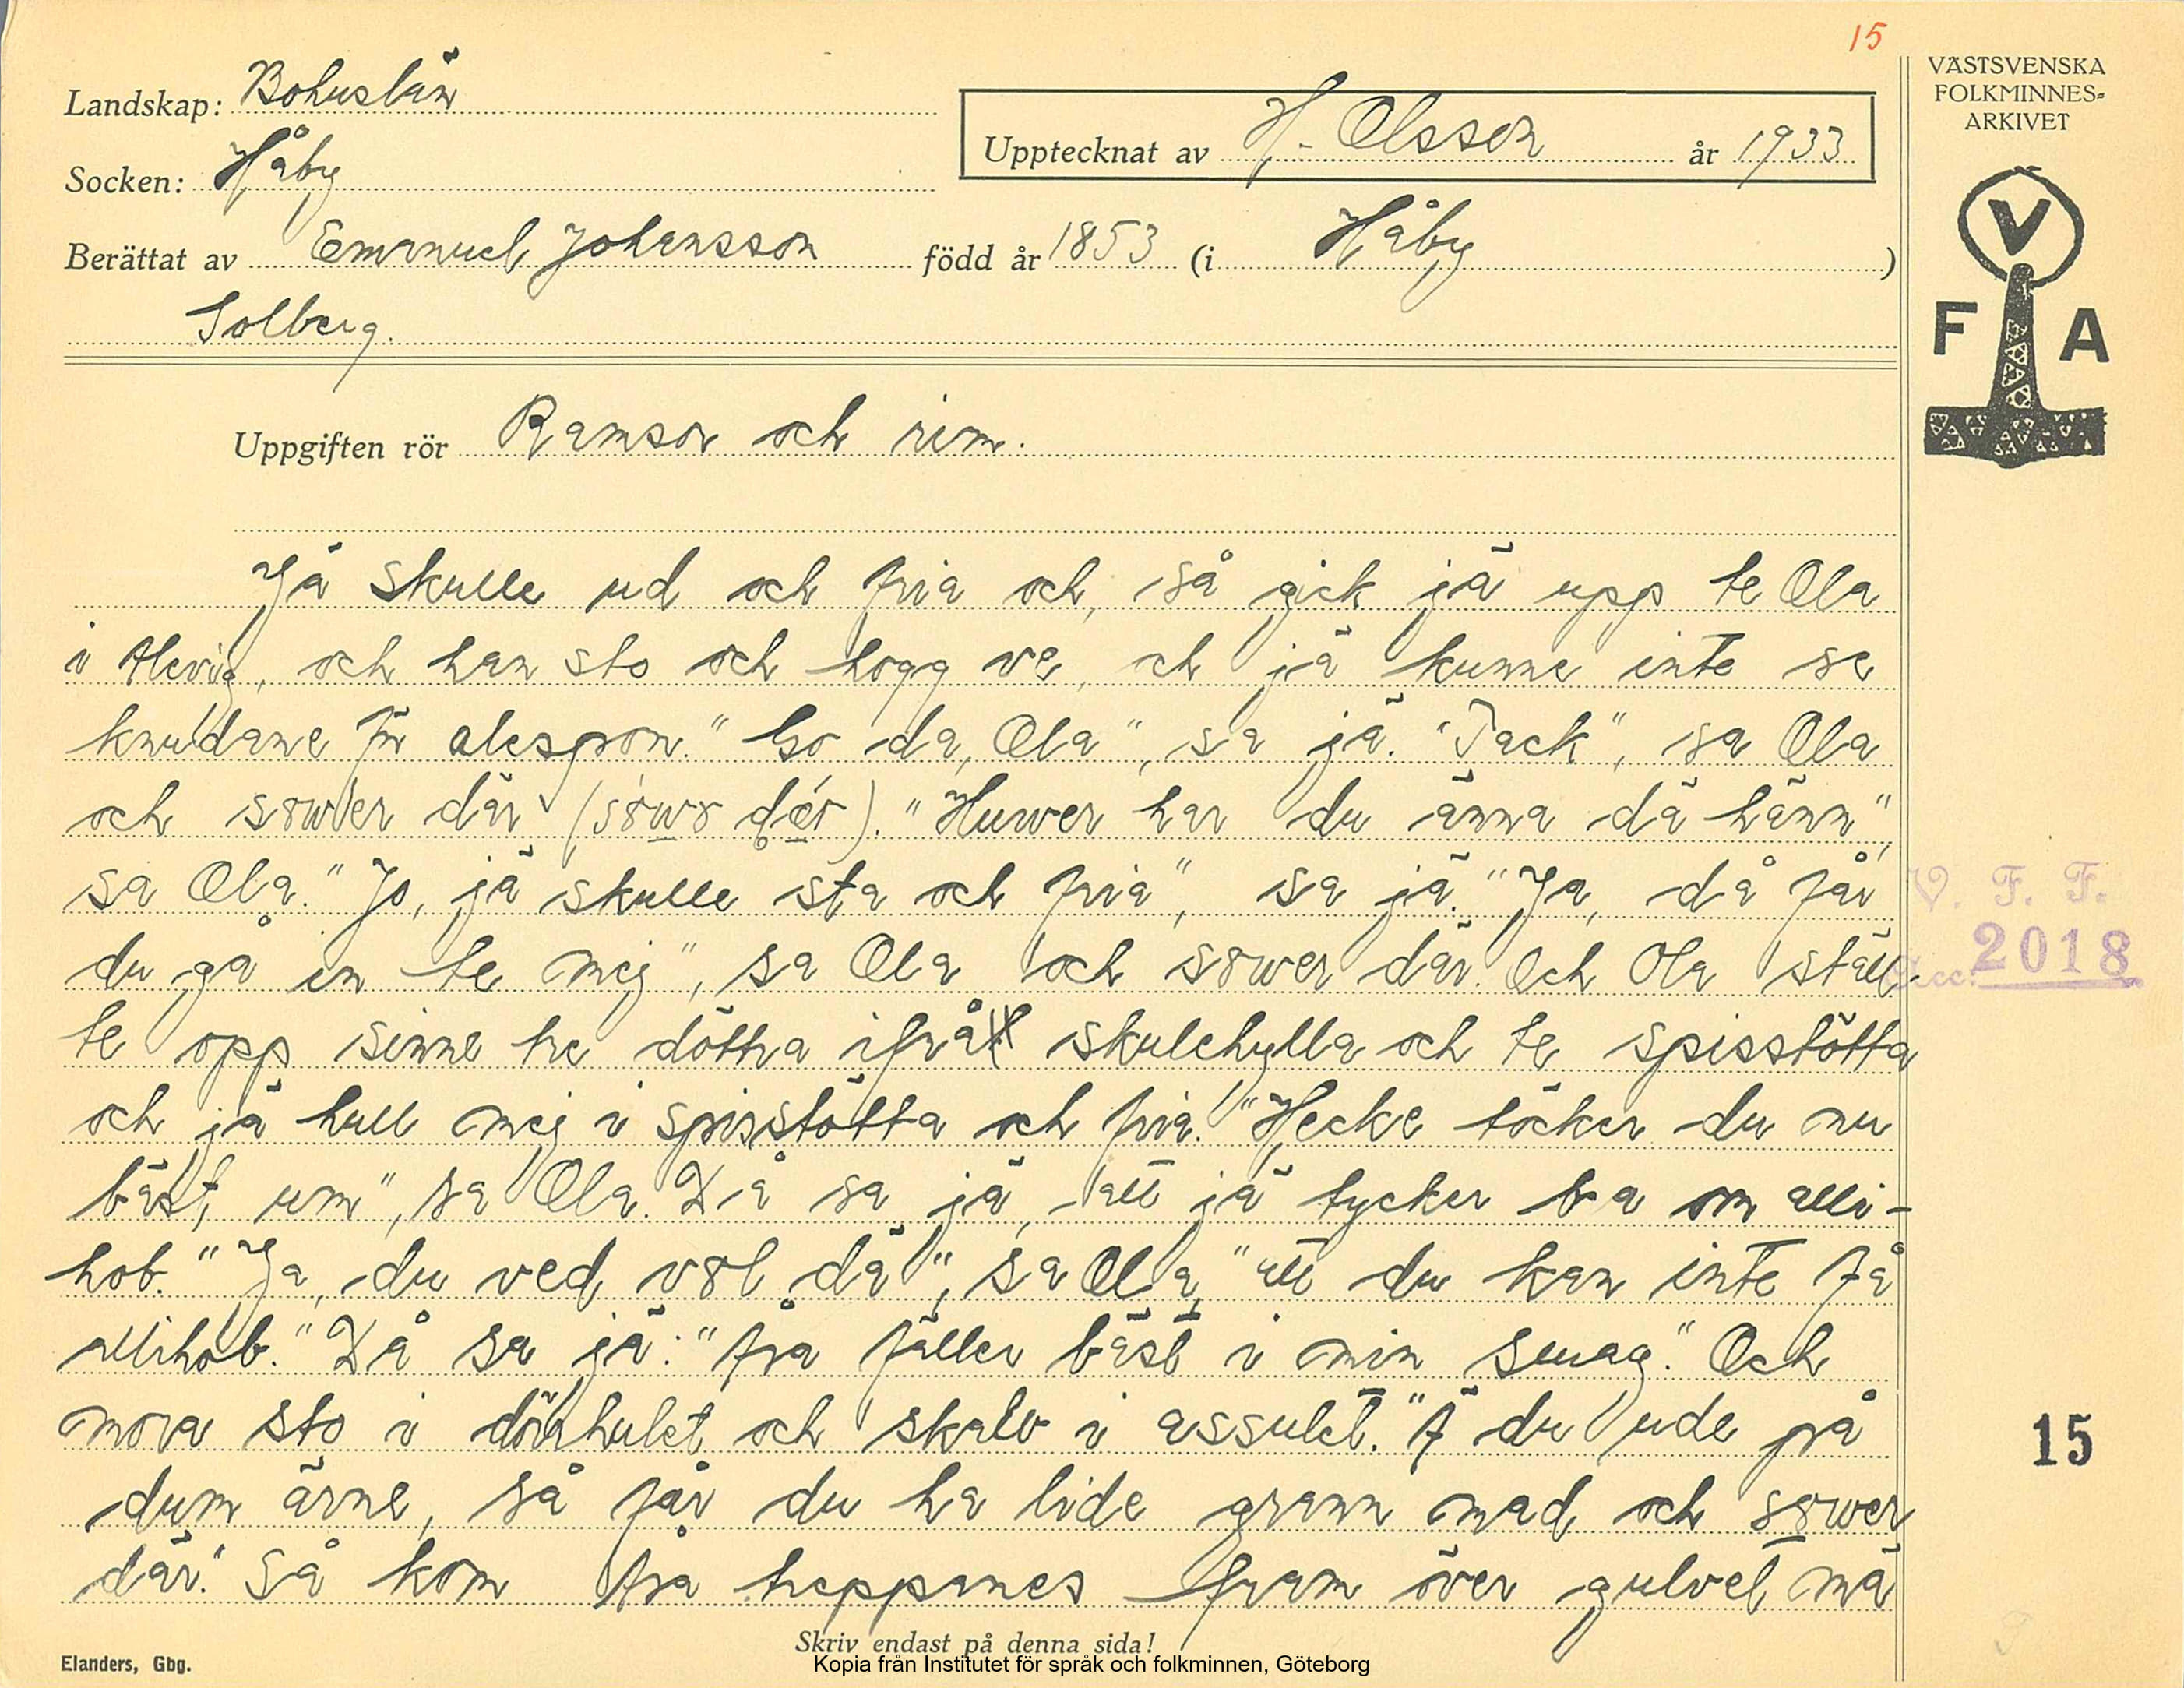 15
VÄSTSVENSKA
FOLKMINNES=
ARKIVET
Landskap: Bohuslän
Upptecknat av H. Olsson år 1933
Socken: Håby
Berättat av Emanuel Johansson född år 1853 (i Håby)
Solberg.
V
F A
Uppgiften rör Ramsor och rim.
Jä skulle ud och fria och, så gick jä upp te Ola
i Alevig, och han sto och hogg ve, och jä kunne inte se
knudane för alespon. "Go da, Ola", sa jä. "Tack", sa Ola
och sower där. "Huwer har du änna dä hänn",
sa Ola. "Jo, jä skulle sta och fria", sa jä. "Ja, då får
du gå in te mej", sa Ola och sower där. Och Ola ställ-
te opp sinne tre döttra ifrå skulehylla och te spisstötta
och jä hull mej i spisstötta och fria. "Hecke töcker du nu
bäst um", sa Ola. Då sa jä, att jä tycker bra om alli-
hob. "Ja, du ved vol dä", sa Ola, "att du kan inte få
allihob." Då sa jä: "fra fäller bäst i min smag." Och
mora sto i dörhulet och skalv i assulet. "Ä du ude på
dum ärne, så får du ha lide grann mad och sower
där." Så kom fra treppanes fram över gulvet mä
V. F. F.
Acc: 2018
15
Skriv endast på denna sida!
Elanders, Gbg.
Kopia från Institutet för språk och folkminnen, Göteborg